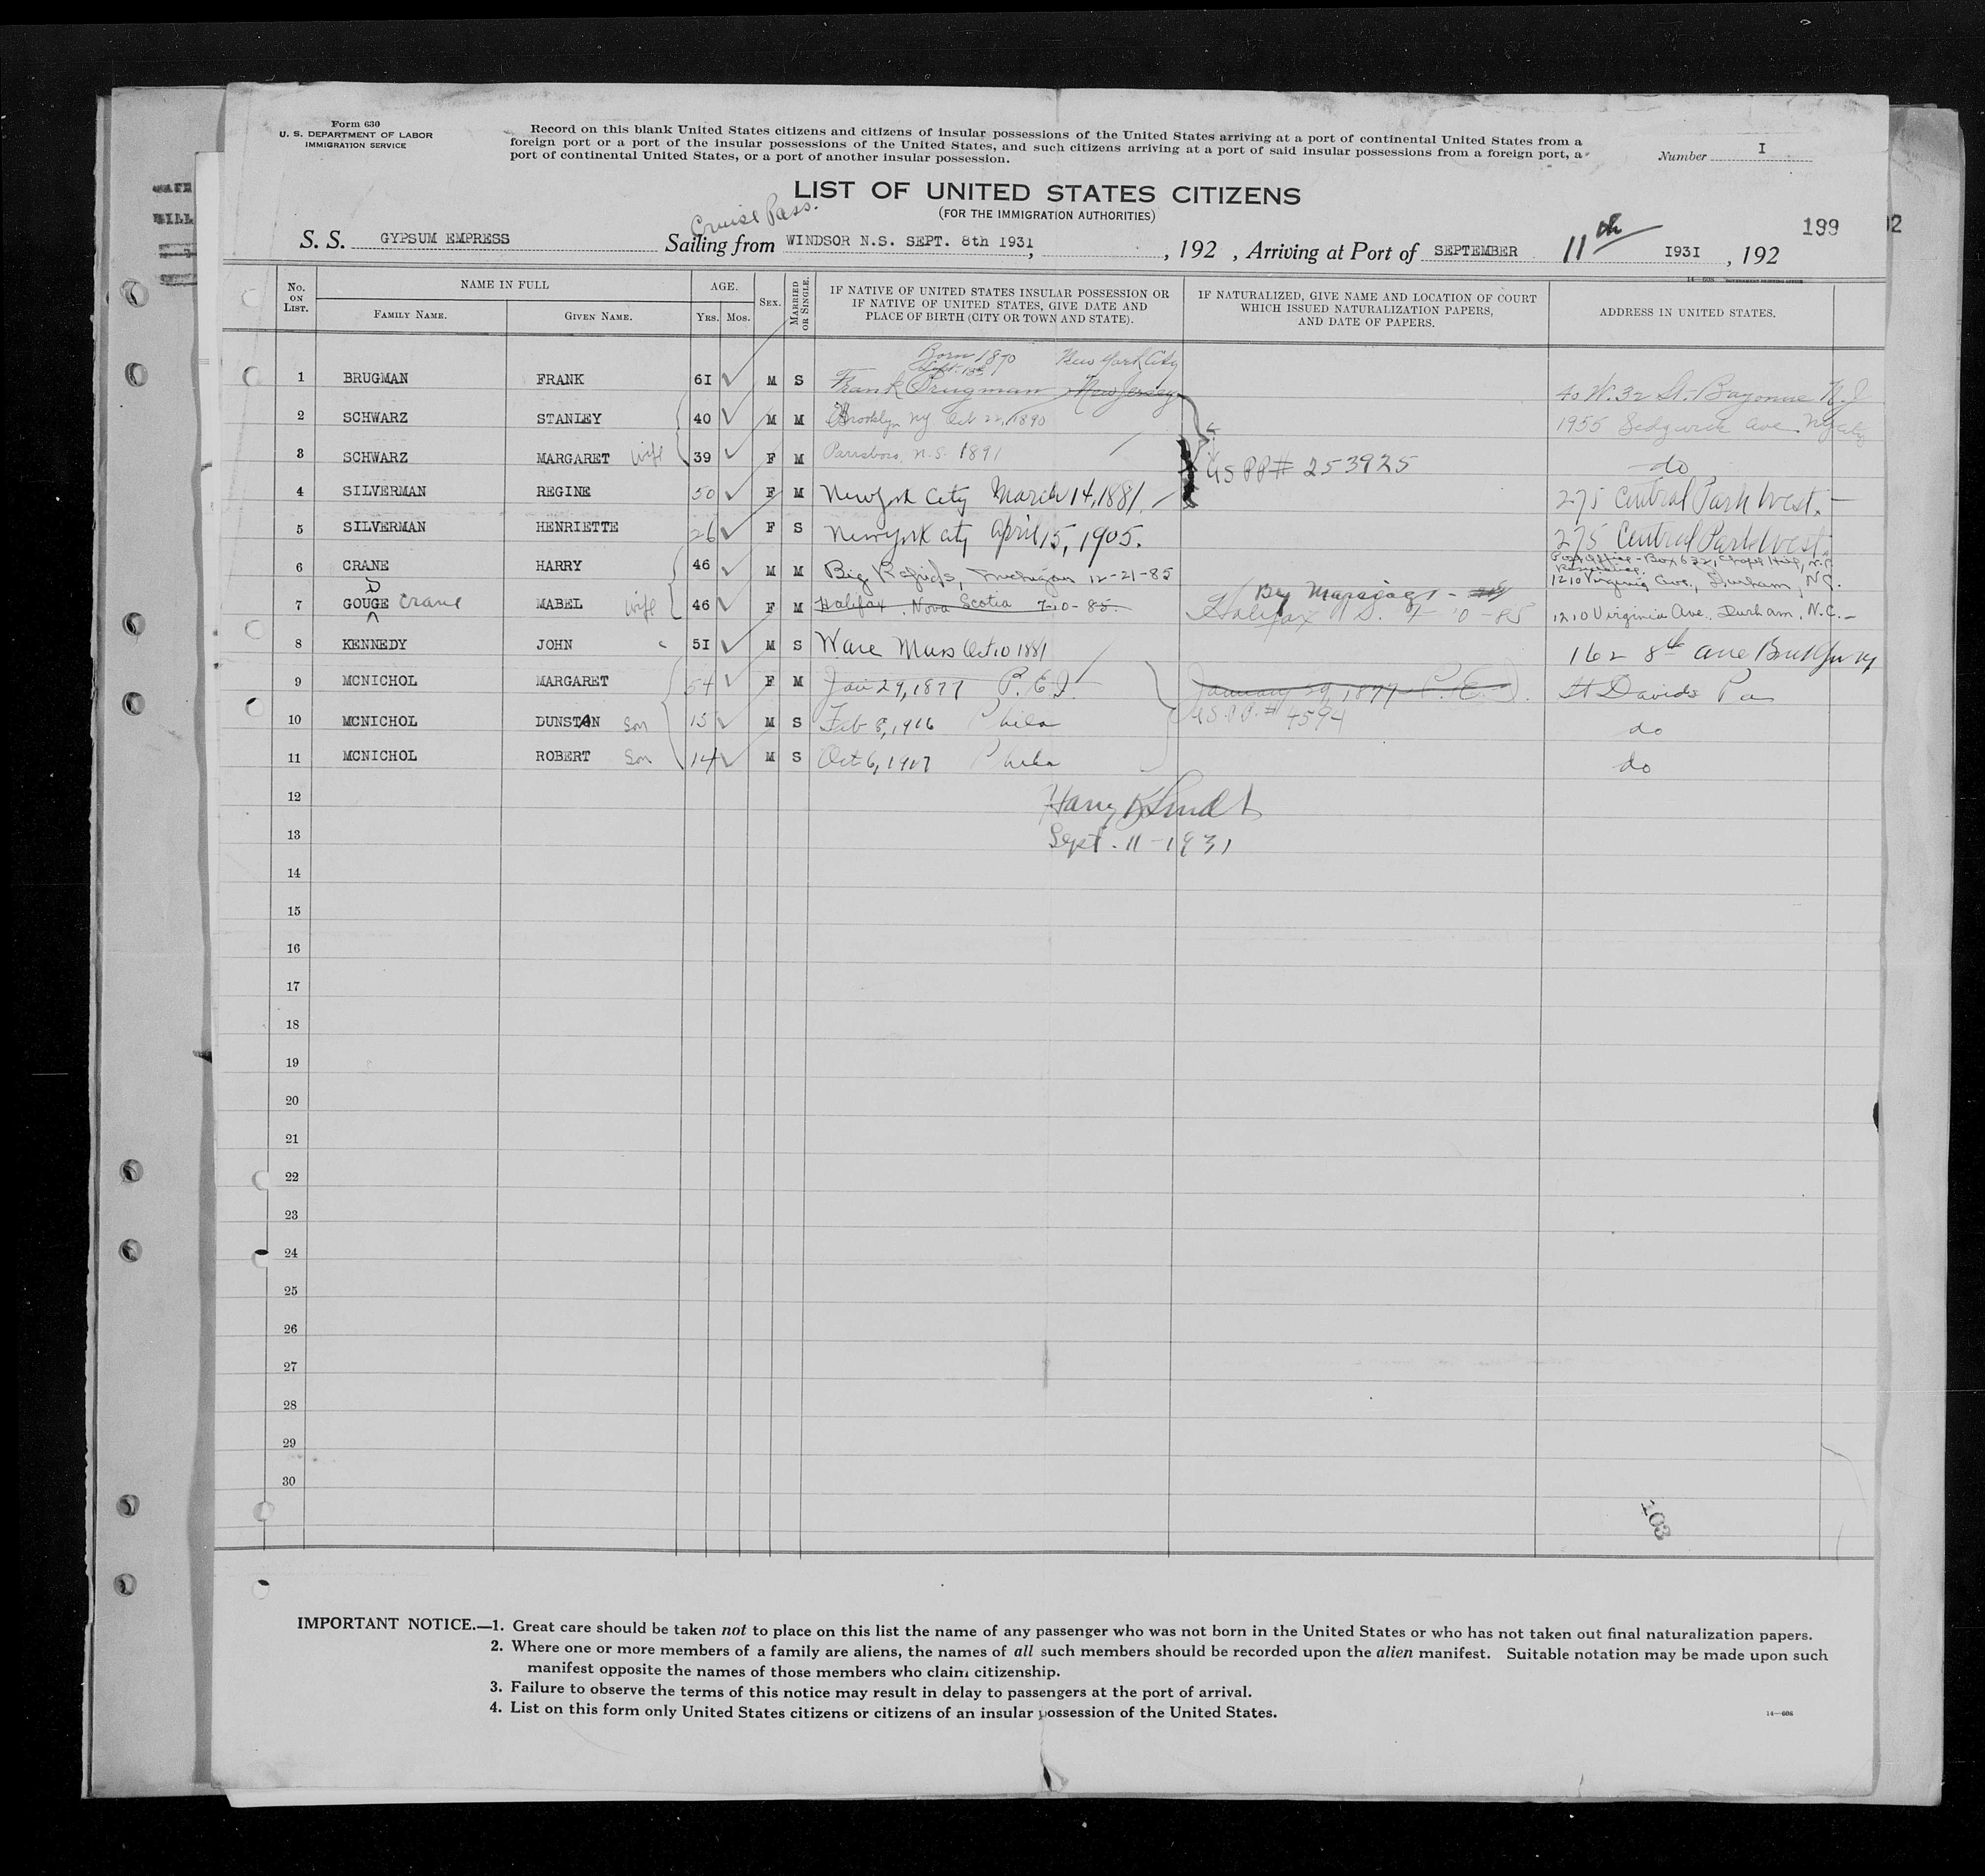 Form 630
U. S. DEPARTMENT OF LABOR
IMMIGRATION SERVICE
Record on this blank United States citizens and citizens of insular possessions of the United States arriving at a port of continental United States from a
foreign port or a port of the insular possessions of the United States, and such citizens arriving at a port of said insular possessions from a foreign port, a
port of continental United States, or a port of another insular possession.
Number I
LIST OF UNITED STATES CITIZENS
(FOR THE IMMIGRATION AUTHORITIES)
Cruise Pass.
199
S. S. GYPSUM EMPRESS Sailing from WINDSOR N.S. SEPT. 8th 1931, , 192 , Arriving at Port of SEPTEMBER 11th 1931 , 192
No. ON LIST. NAME IN FULL AGE. SEX. MARRIED OR SINGLE. IF NATIVE OF UNITED STATES INSULAR POSSESSION OR IF NATIVE OF UNITED STATES, GIVE DATE AND PLACE OF BIRTH (CITY OR TOWN AND STATE). IF NATURALIZED, GIVE NAME AND LOCATION OF COURT WHICH ISSUED NATURALIZATION PAPERS, AND DATE OF PAPERS. ADDRESS IN UNITED STATES.
FAMILY NAME. GIVEN NAME. YRS. MOS.
Born 1870 New York City
1 BRUGMAN FRANK 61 M S Frank Brugman New Jersey 40 W. 32 St. Bayonne N.J
2 SCHWARZ STANLEY 40 M M Brooklyn NY Oct 22, 1890 1955 Sedgwick Ave. NYCity
3 SCHWARZ MARGARET wife 39 F M Parrsboro, N.S. 1891 US PP# 253925 do
4 SILVERMAN REGINE 50 F M New York City March 14, 1881 275 Central Park West.
5 SILVERMAN HENRIETTE 26 F S New York City April 15, 1905. 275 Central Park West.
Post Office - Box 622, Chapel Hill, N.C.
6 CRANE HARRY 46 M M Big Rapids, Michigan 12-21-85 1210 Virginia Ave., Durham, N.C.
By Marriage -
7 GOUDGE Crane MABEL wife 46 F M Halifax, Nova Scotia 7-10-85. Halifax N.S. 7 10-85 1210 Virginia Ave., Durham, N.C.
8 KENNEDY JOHN 51 M S Ware Mass Oct 10 1881 162 8th ave Brooklyn NY
9 MCNICHOL MARGARET 54 F M Jan 29, 1877 P.E.I. January 29, 1877 P.E.I. St Davids Pa
10 MCNICHOL DUNSTAN Son 15 M S Feb 8, 1916 Phila US PP. # 4594 do
11 MCNICHOL ROBERT Son 14 M S Oct 6, 1917 Phila do
12 Harry
13 Sept. 11-1931
14
15
16
17
18
19
20
21
22
23
24
25
26
27
28
29
30
103
IMPORTANT NOTICE.—1. Great care should be taken not to place on this list the name of any passenger who was not born in the United States or who has not taken out final naturalization papers.
2. Where one or more members of a family are aliens, the names of all such members should be recorded upon the alien manifest. Suitable notation may be made upon such
manifest opposite the names of those members who claim citizenship.
3. Failure to observe the terms of this notice may result in delay to passengers at the port of arrival.
4. List on this form only United States citizens or citizens of an insular possession of the United States.
14—608